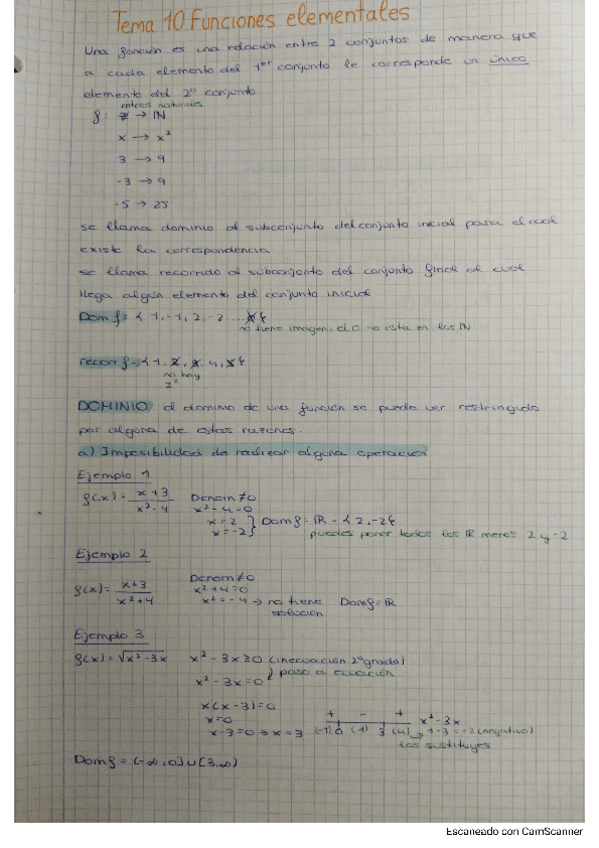 Tema 10 Funciones elementales
Una función es una relación entre 2 conjuntos de manera que
a cada elemento del 1er conjunto le corresponde un único
elemento del 2º conjunto
enteros naturales
f: Z → IN
x → x²
3 → 9
-3 → 9
-5 → 25
se llama dominio al subconjunto del conjunto inicial para el cual
existe la correspondencia
se llama recorrido al subconjunto del conjunto final al cual
llega algún elemento del conjunto inicial
Dom f = { 1, -1, 2, -2 ... }
no tiene imagen, el 0 no esta en los IN
recorr f = { 1, 2, 3, 4, 5 }
no hay
z²
DOMINIO: el dominio de una función se puede ver restringido
por alguna de estas razones.
a) Imposibilidad de realizar alguna operación
Ejemplo 1
f(x) = x+3 / x²-4 Denom ≠ 0
x²-4=0
x=2
x=-2 } Dom f = IR - { 2, -2 }
puedes poner todos los IR menos 2 y -2
Ejemplo 2
f(x) = x+3 / x²+4 Denom ≠ 0
x²+4=0
x² = -4 → no tiene solución Dom f = IR
Ejemplo 3
f(x) = √x²-3x x²-3x≥0 (inecuación 2º grado)
x²-3x=0 } paso a ecuación
x(x-3)=0
x=0
x-3=0 → x=3
+ - + x²-3x
(-1) 0 (1) 3 (4) → 1-3=-2 (negativo)
Los sustituyes
Dom f = (-∞, 0] ∪ [3, ∞)
Escaneado con CamScanner